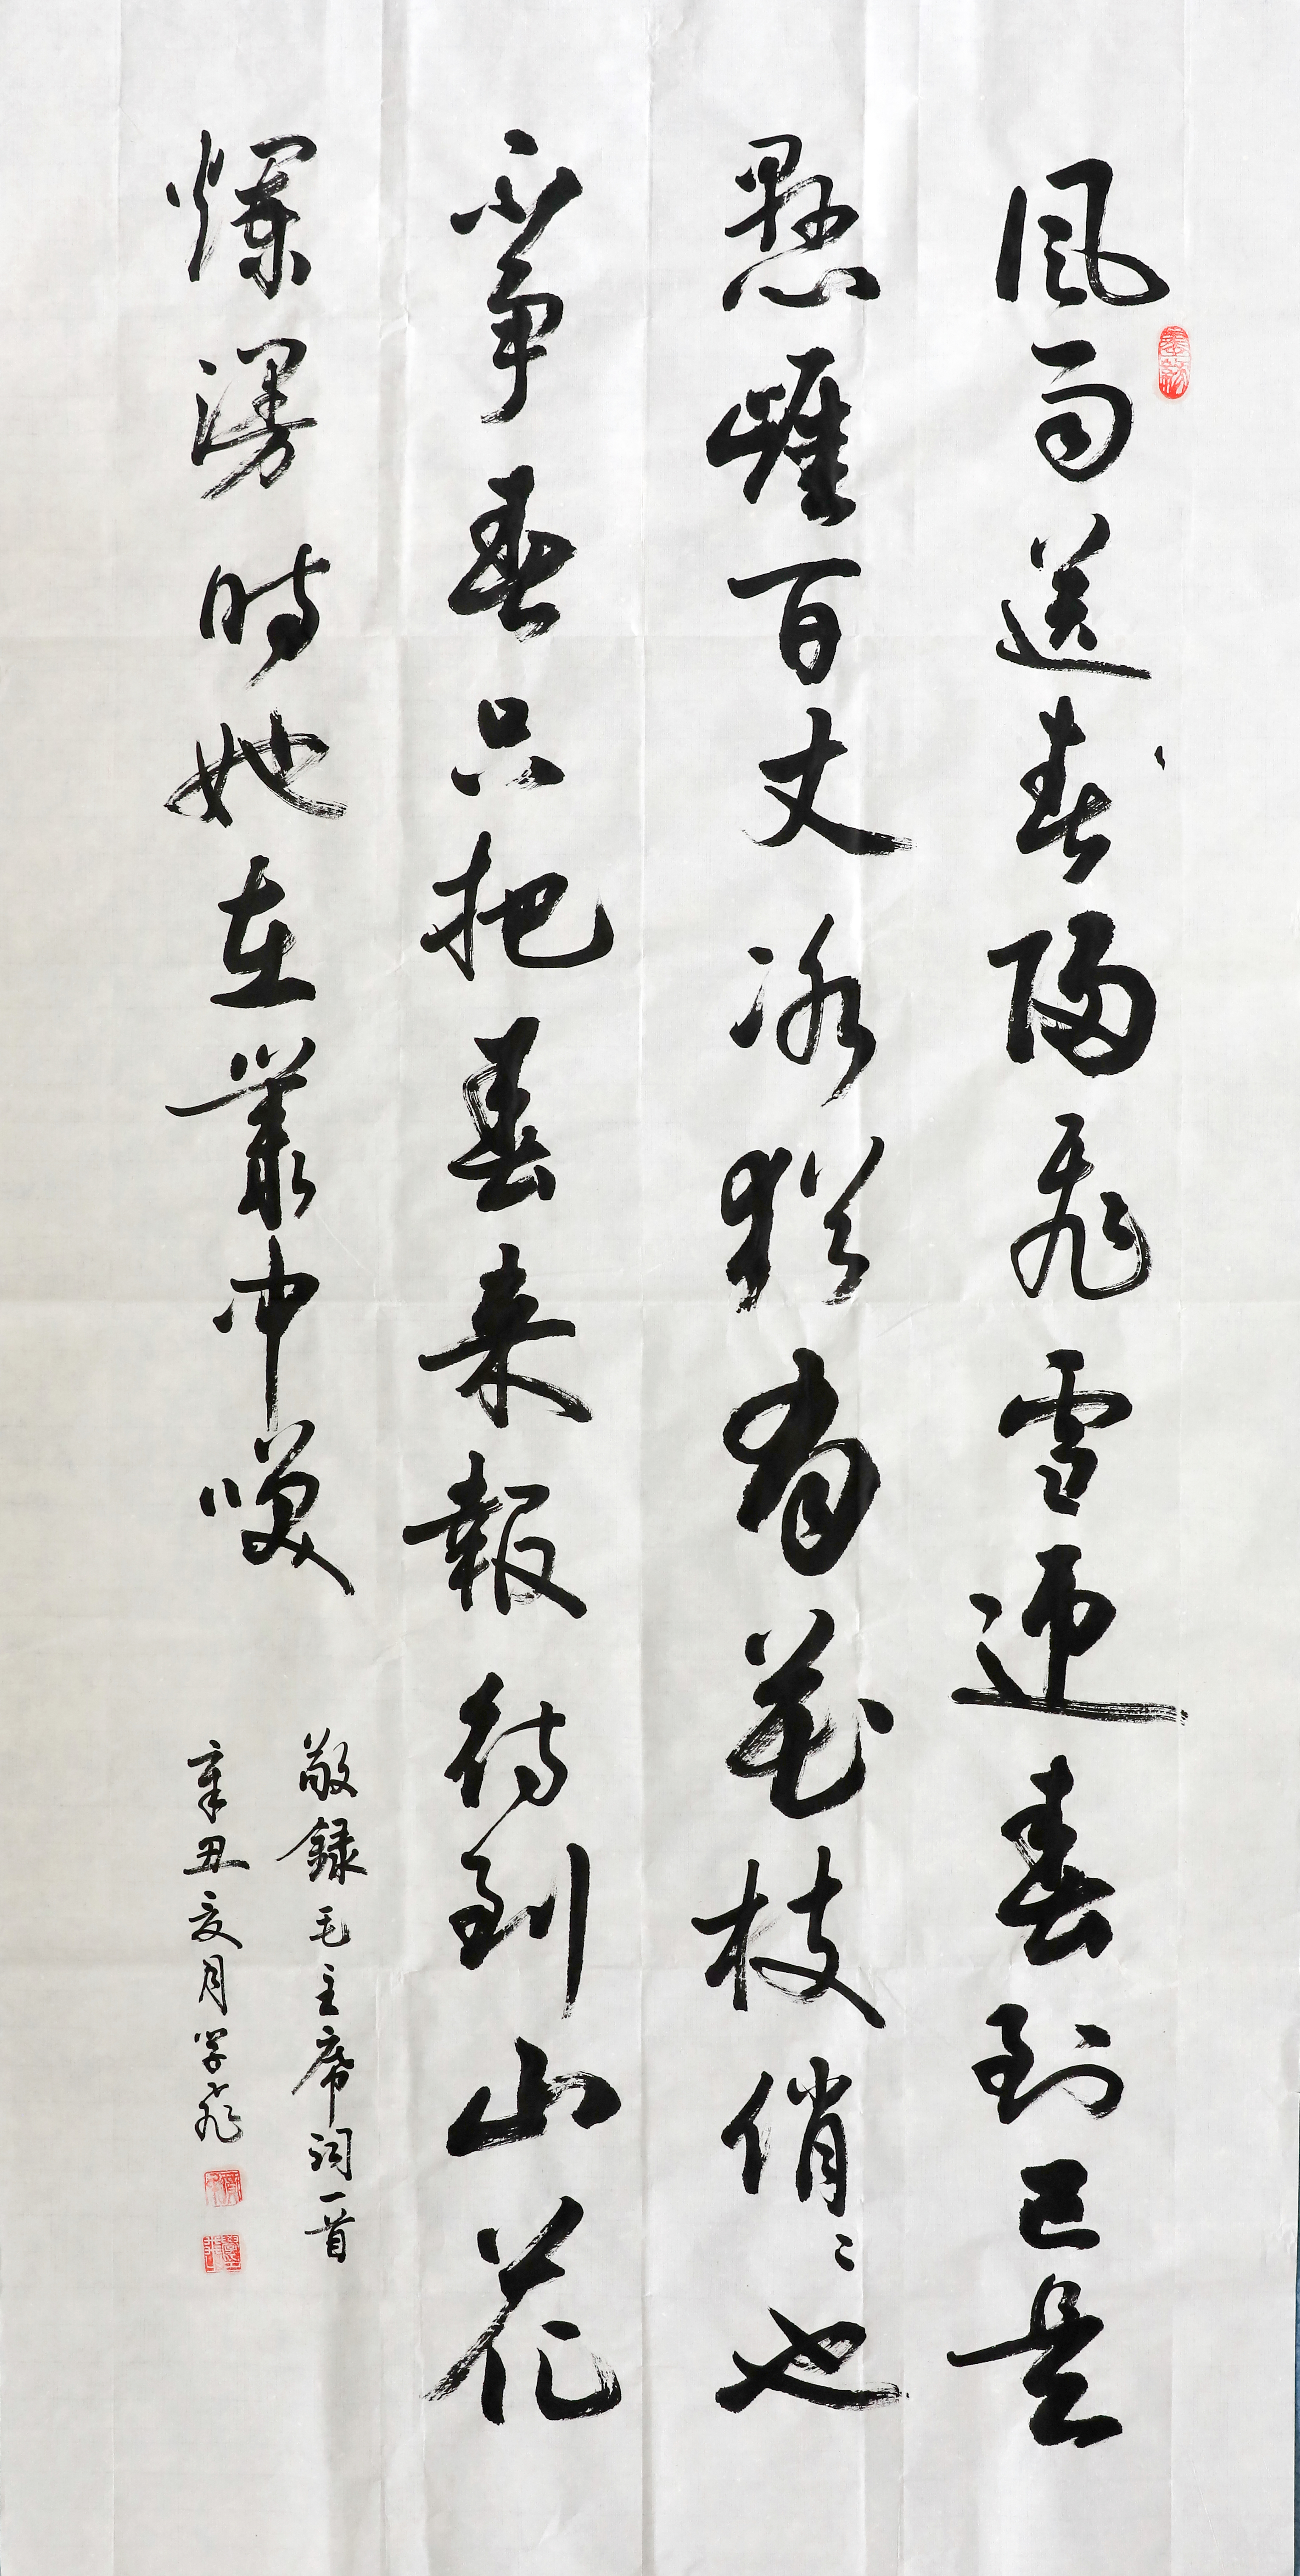 風雨送春歸飛雪迎春到已是
懸崖百丈冰猶有花枝俏〻也
不爭春只把春来報待到山花
爛漫時她在叢中咲
敬錄毛主席詞一首
辛丑夏月学飛